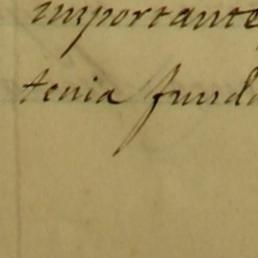 importante
tenia funda